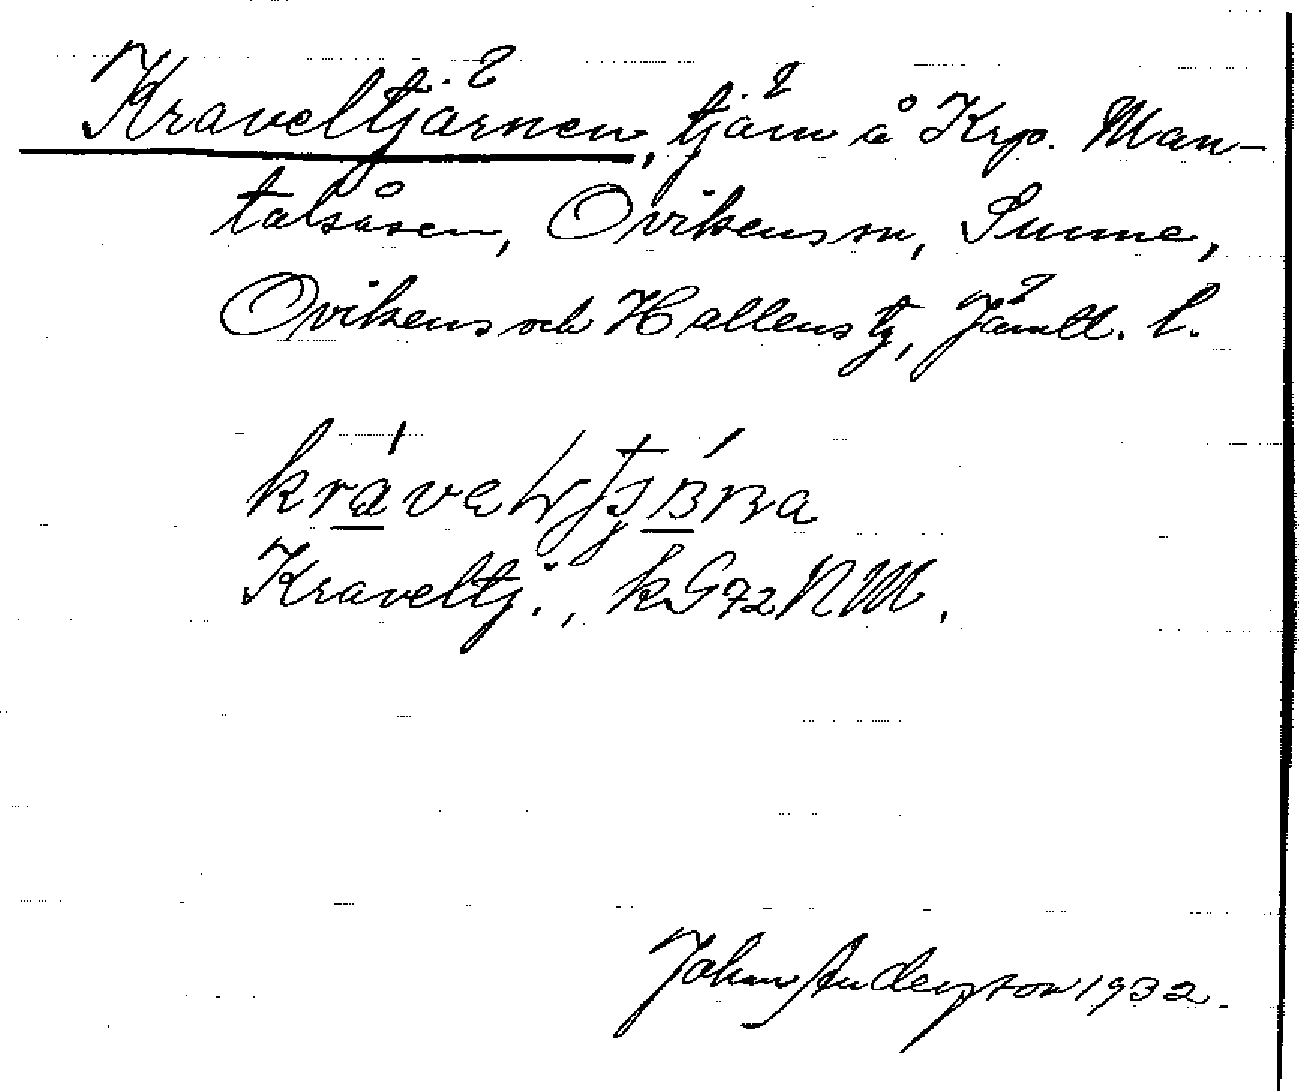 Kraveltjärnen, tjärn å Krp. Man-
talsåsen, Ovikens sn, Sunne,
Ovikens och Hallens tg, Jämtl. l.
Kraveltj., kG72NM.
John Anderson 1932.